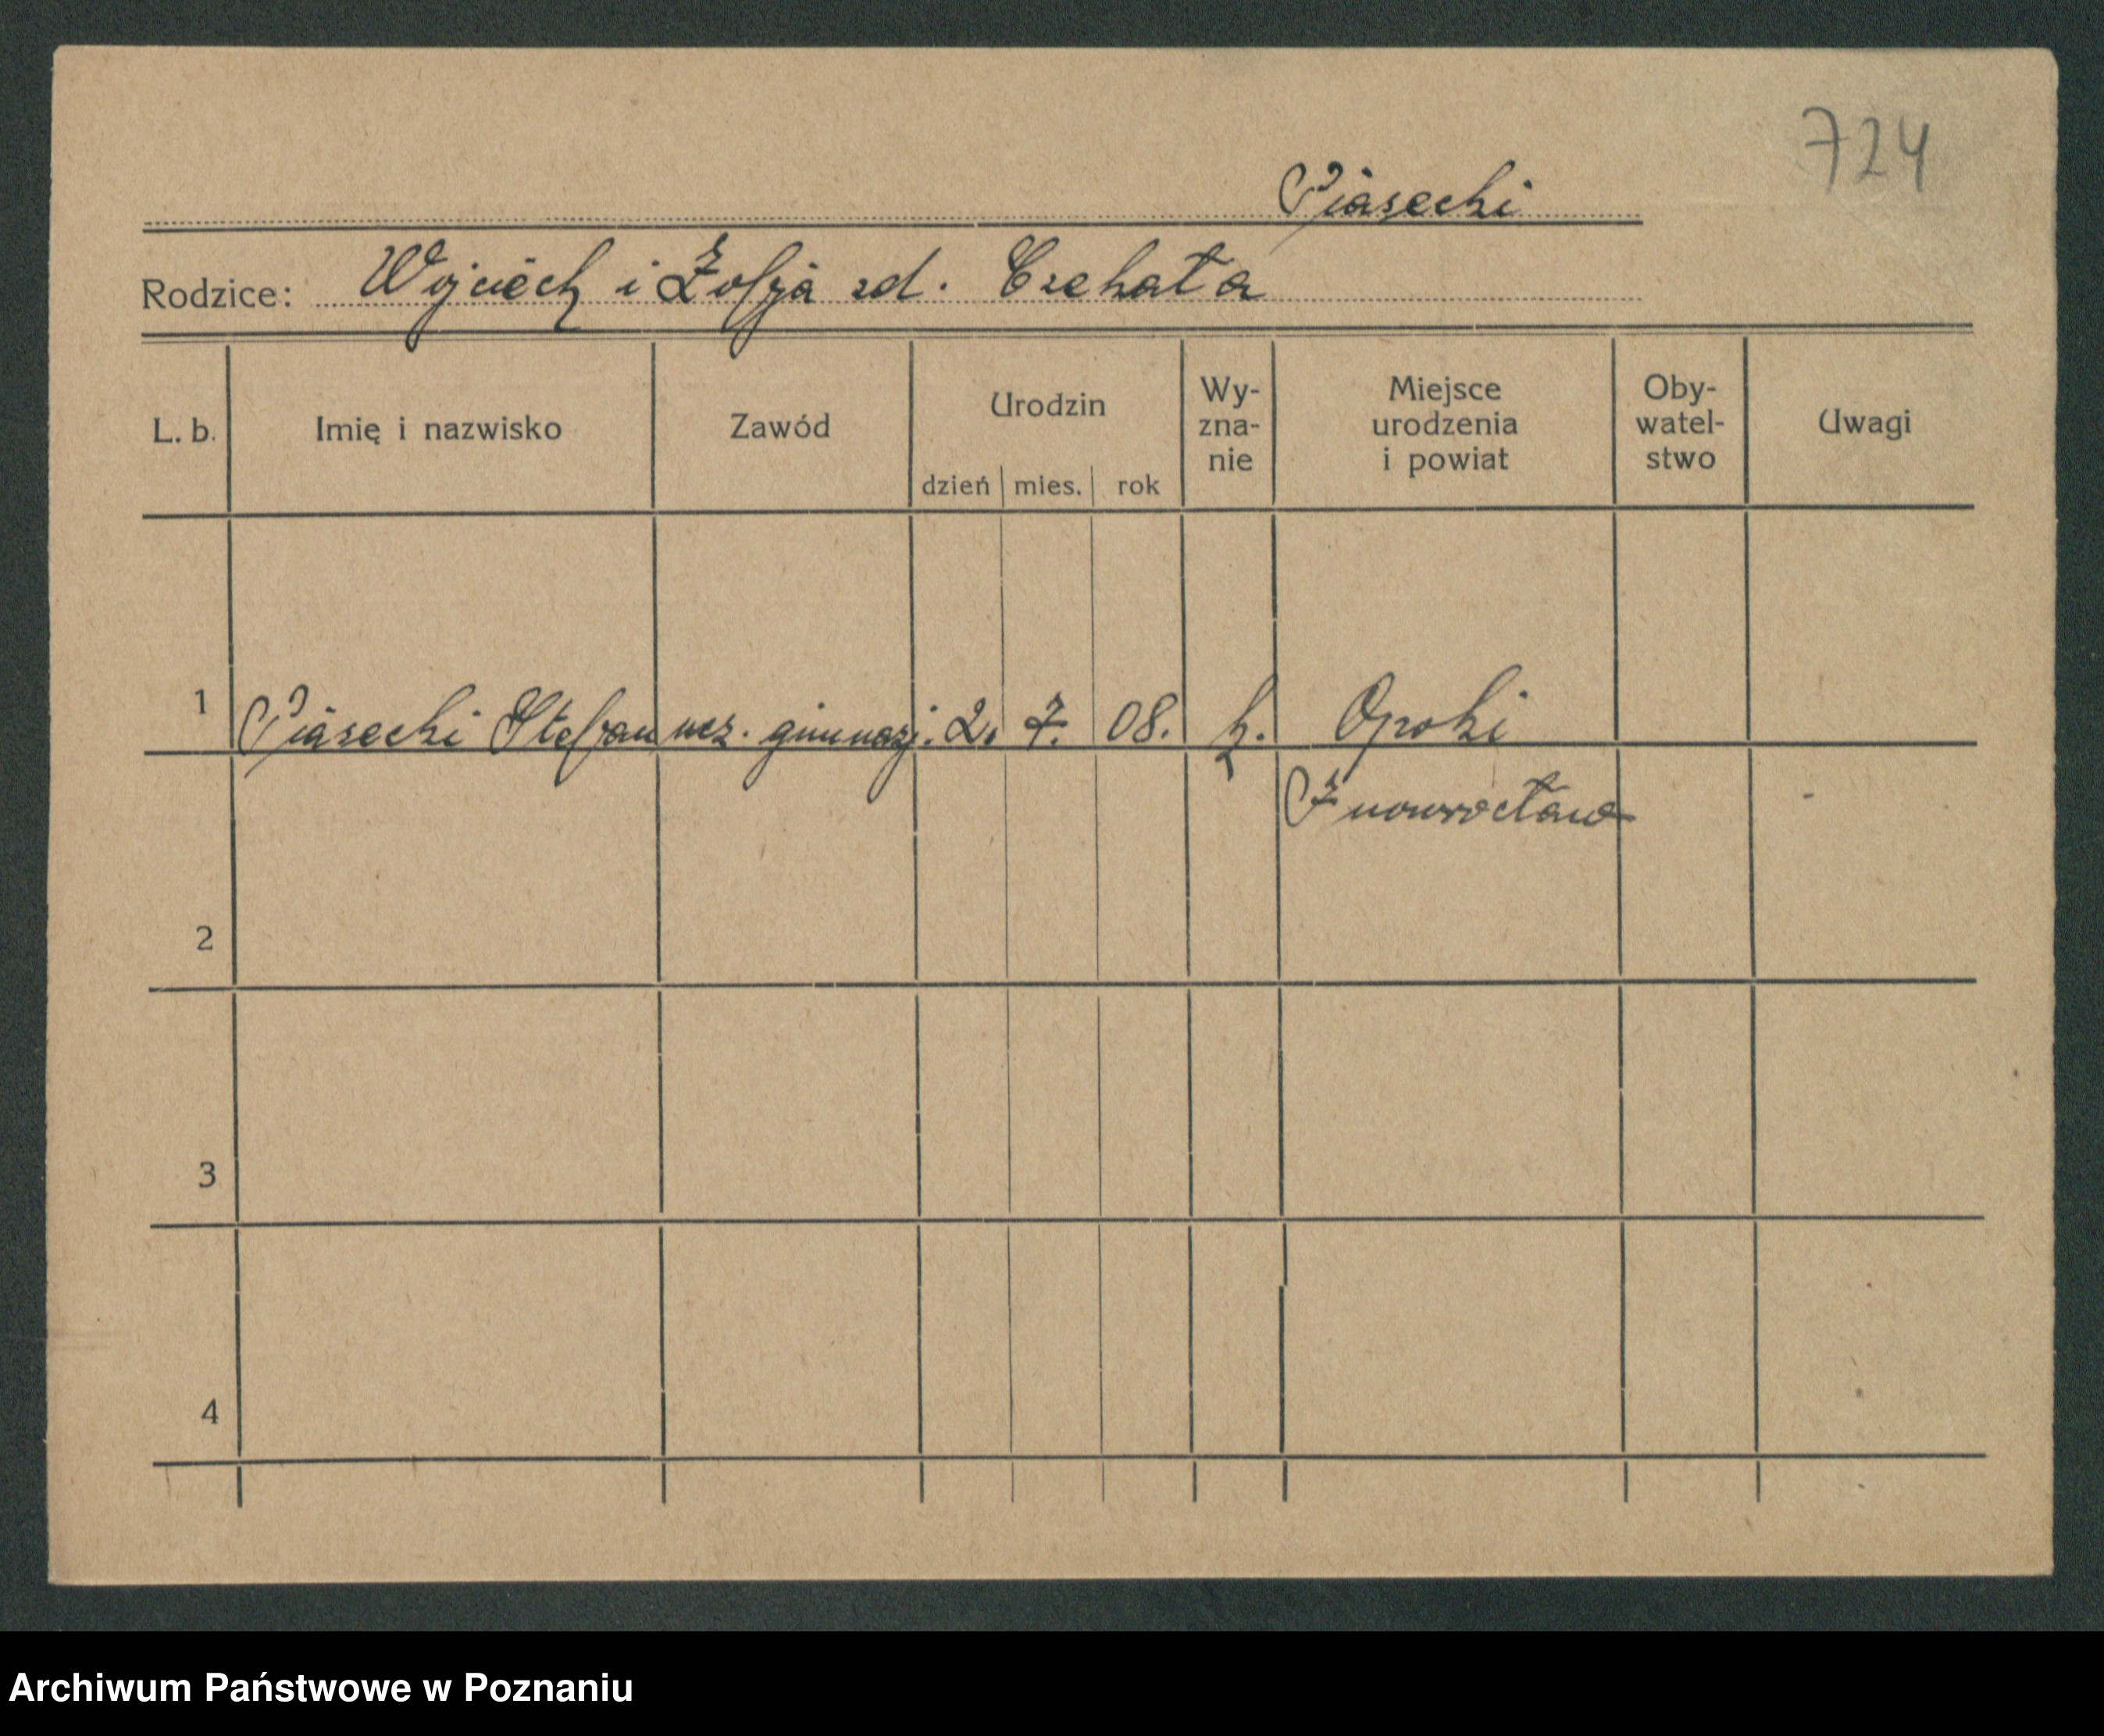 724
Piasecki
Rodzice: Wojciech i Zofja zd. Czekała
L. b. Imię i nazwisko Zawód Urodzin dzień mies. rok Wy-zna-nie Miejsce urodzenia i powiat Oby-watel-stwo Uwagi
1 Piasecki Stefan ucz. gimnazj. 2. 7. 08. k. Opoki
Inowrocław
2
3
4
Archiwum Państwowe w Poznaniu